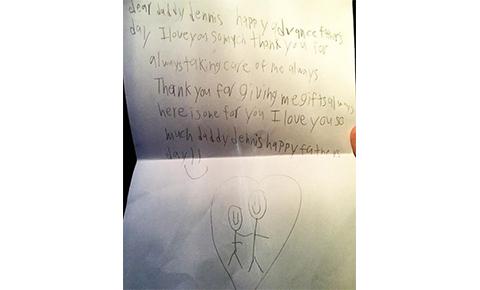 dear daddy dennis happy advance fathers
day I love you so mych thank you for
always taking care of me always
Thank you for giving me gifts always
here is one for you I love you so
much daddy dennis happy fathers
day!!